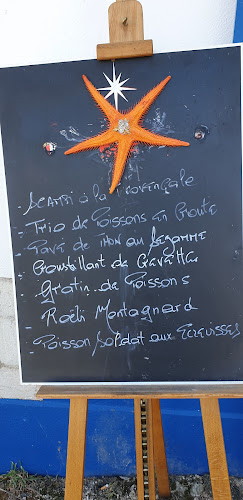 - Scampi a la Provençale
- Trio de Poissons en Croute
- Pavé de thon au Sezamme
- Croustillant de
- Gratin de Poissons
- Roëti Montagnard
- Poisson soldat aux Ecrevisses